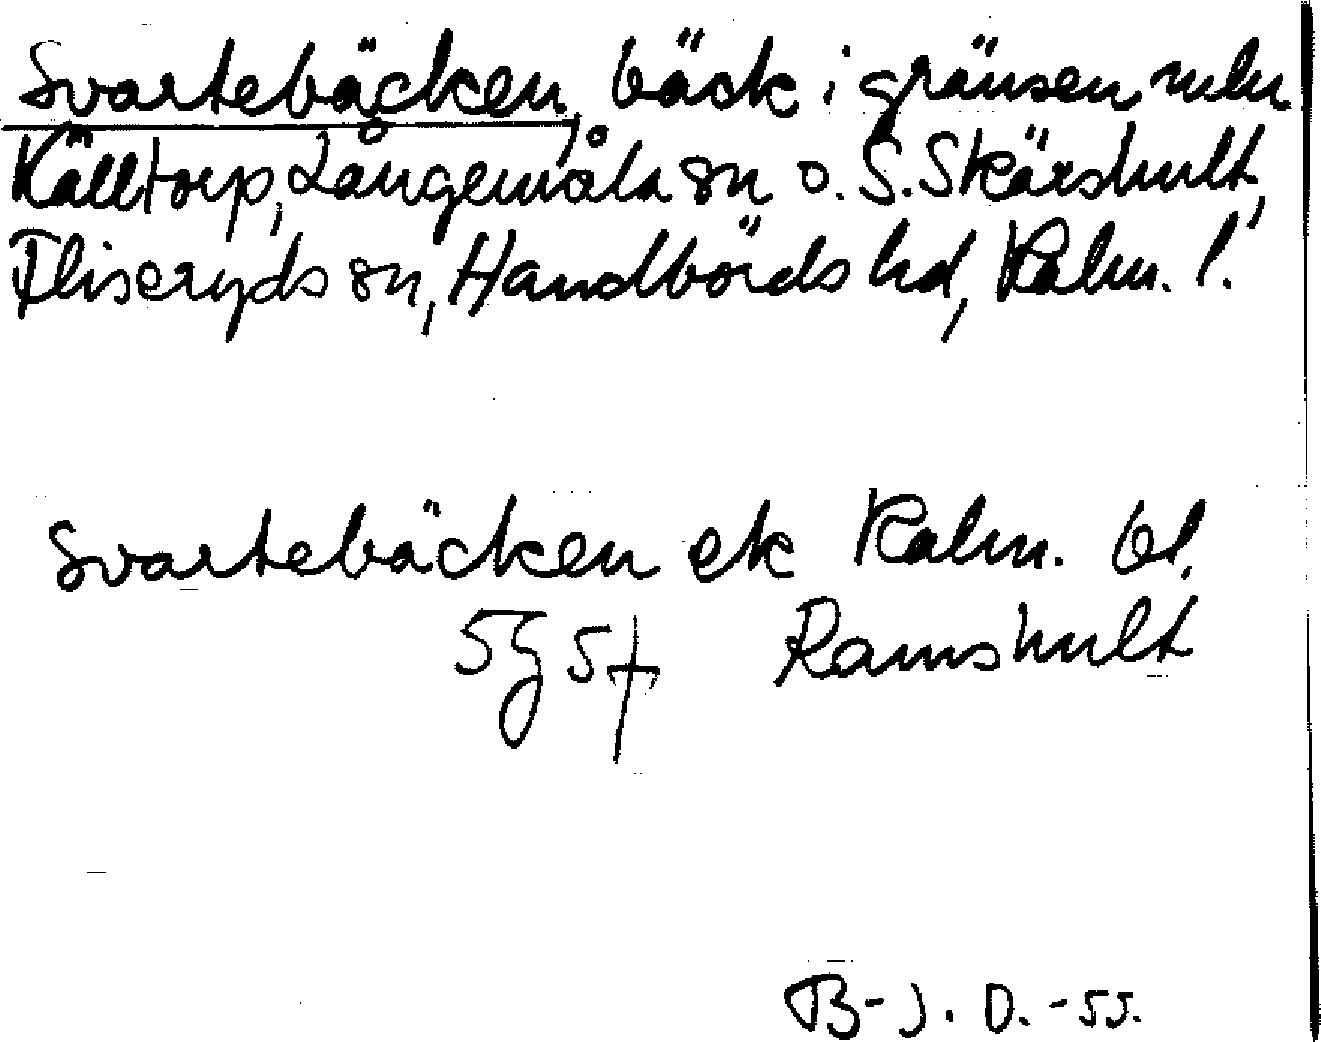 Svartebäcken, bäck i gränsen mln
Källtorp, Långemåla sn o. S. Skärshult,
Fliseryds sn, Handbörds hd, Kalm. l.
Svartebäcken ek Kalm. bl.
5g 5f Ramshult
B-J. O. -55.